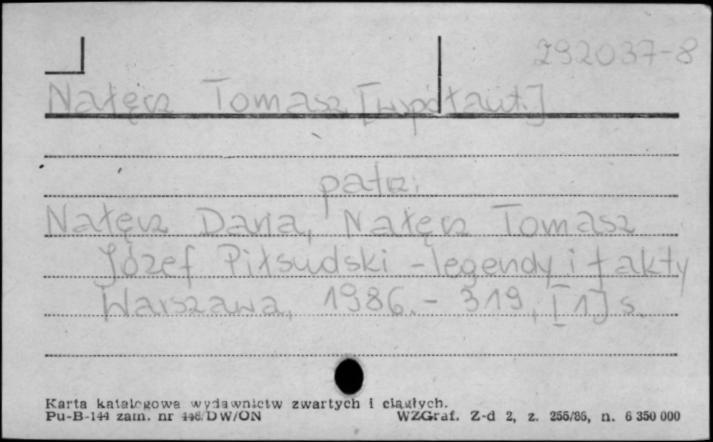 292037-8
Nałęcz Tomasz [współaut.]
patrz:
Nałęcz Daria, Nałęcz Tomasz
Józef Piłsudski - legendy i fakty
Warszawa, 1986. - 319, [1] s.
Karta katalogowa wydawnictw zwartych i ciągłych.
Pu-B-144 zam. nr 446/DW/ON WZGraf. Z-d 2, z. 255/86, n. 6 350 000